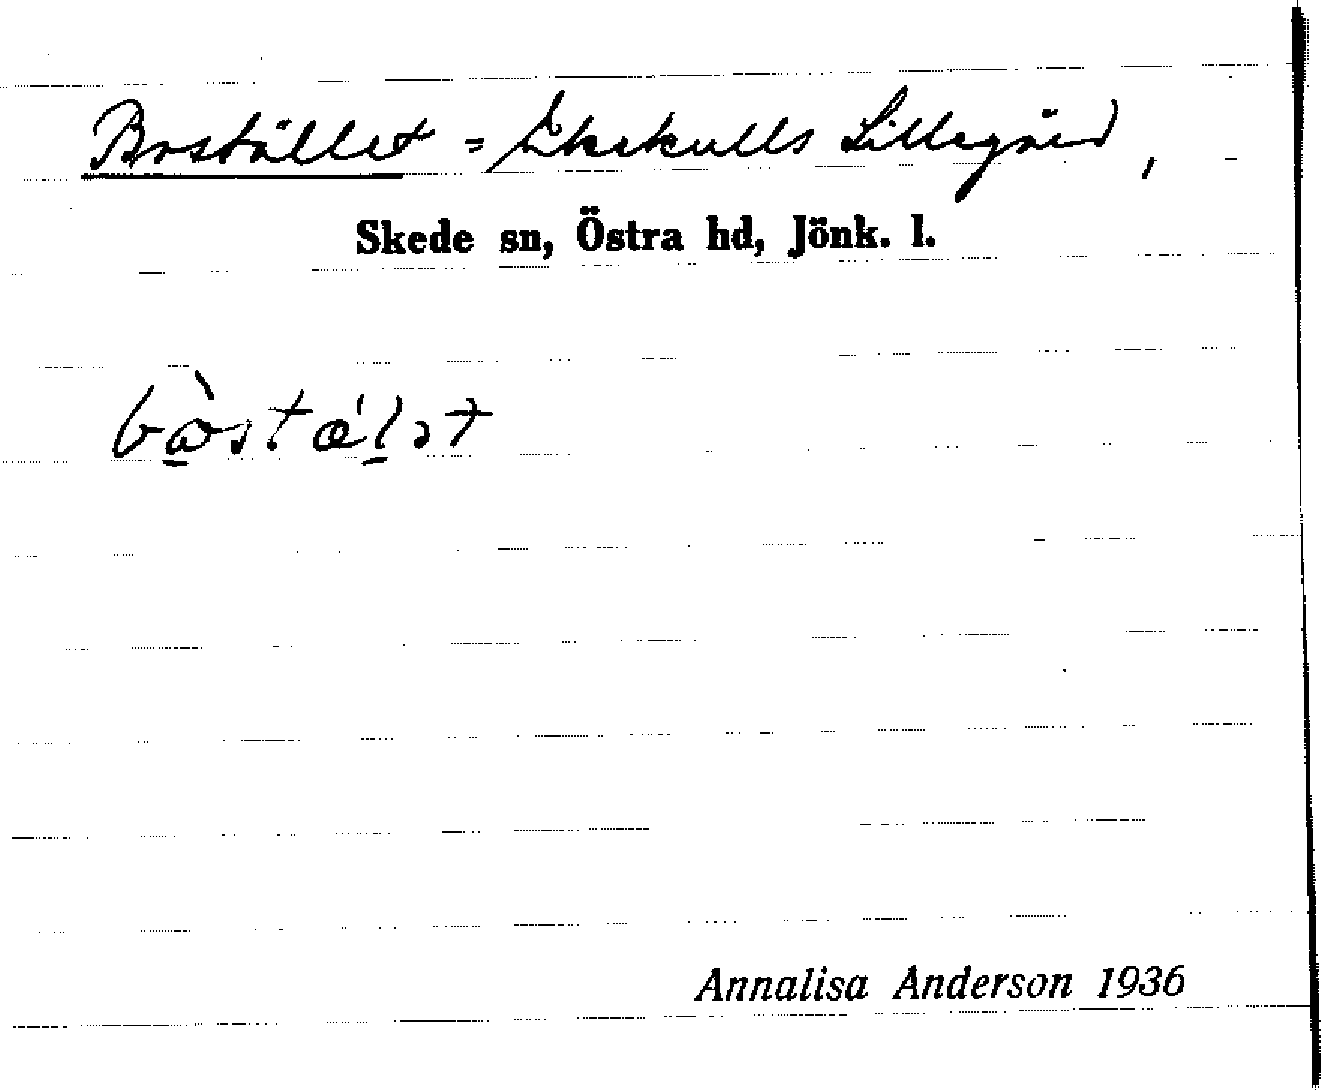 Bostället = Ekekulls Lillegård,
Skede sn, Östra hd, Jönk. l.
bòstæ̀lət
Annalisa Anderson 1936